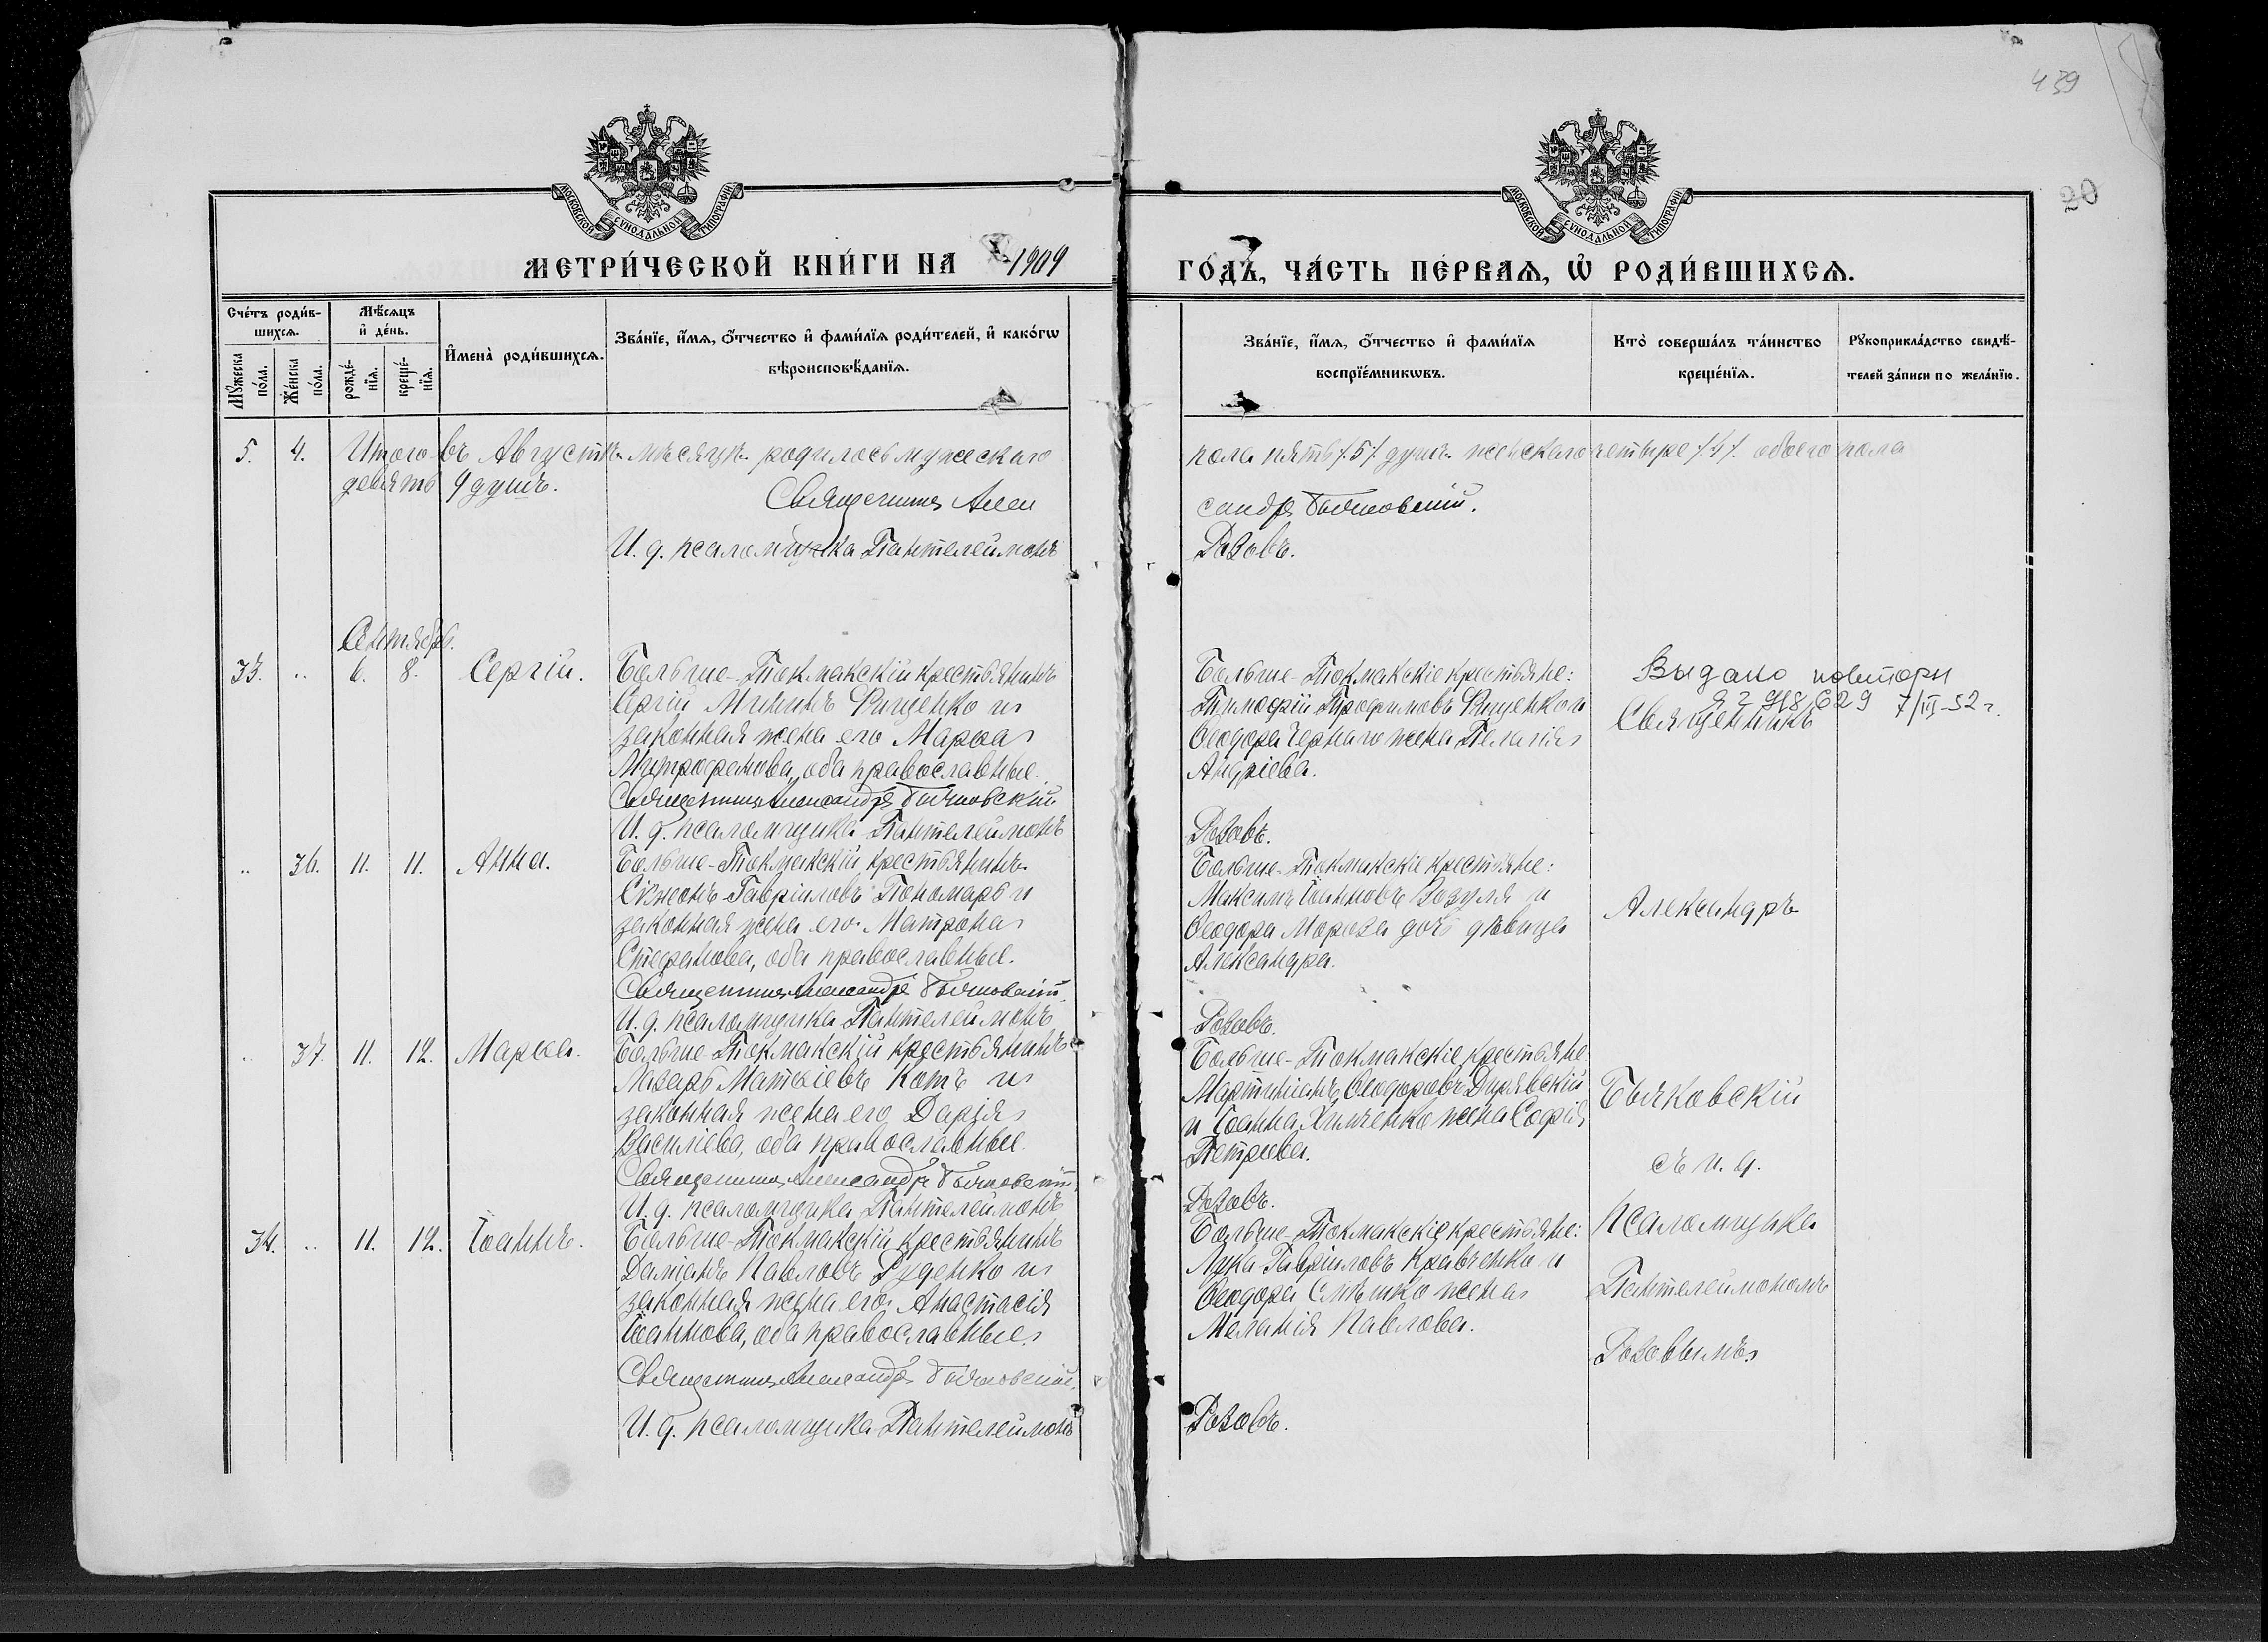 439
20
МОСКОВСКОЙ СУНОДАЛЬНОЙ ТИПОГРАФІИ
МОСКОВСКОЙ СУНОДАЛЬНОЙ ТИПОГРАФІИ
МЕТРИ́ЧЕСКОЙ КНИ́ГИ НА 1909
ГО́ДЪ, ЧА́СТЬ ПЕ́РВАѦ, Ѡ҆ РОДИ́ВШИХСѦ.
Сче́тъ роди́в-
шихсѧ.
Мꙋ́жеска по́ла.
Же́нска по́ла.
Мѣ́сѧцъ
и҆ де́нь.
рожде́-нїѧ.
креще́-нїѧ.
И҆мена̀ роди́вшихсѧ.
Зва́нїе, и҆́мѧ, ѻ҆́тчество и҆ фами́лїѧ роди́телей, и҆ како́гѡ
вѣроисповѣ́данїѧ.
Зва́нїе, и҆́мѧ, ѻ҆́тчество и҆ фами́лїѧ
воспрїе́мникѡвъ.
Кто̀ соверша́лъ та́инство
креще́нїѧ.
Рꙋкоприкла́дство свидѣ́-
телей за́писи по жела́нїю.
5. 4. Итого въ Августѣ мѣсяцѣ родилось мужескаго
пола пять /.5/. душъ женскаго четыре /.4/. обоего пола
девять 9 душъ.
Священникъ Алек
сандръ Бычковскій.
И. д. псаломщика Пантелеймонъ
Розовъ.
Сентябрь.
33. .. 6. 8. Сергій. Больше-Токмакскій крестьянинъ
Сергій Мининъ Рищенко и
законная жена его Марѳа
Митрофанова, оба православные.
Священникъ Александръ Бычковскій
И. д. псаломщика Пантелеймонъ
Больше-Токмакскіе крестьяне:
Тимофій Трофимовъ Рищенко и
Ѳеодора Чернаго жена Пелагія
Андріева.
Розовъ.
Выдано повторн
ЯЭ 918629 7/III-52 г.
Священникъ
.. 36. 11. 11. Анна. Больше-Токмакскій крестьянинъ
Сѵмеонъ Гавріиловъ Пономарь и
законная жена его Матрона
Стефанова, оба православные.
Священникъ Александръ Бычковскій
И. д. псаломщика Пантелеймонъ
Больше-Токмакскіе крестьяне:
Максимъ Іоанновъ Зозуля и
Ѳеодора Мороза дочь дѣвица
Александра.
Розовъ.
Александръ
.. 37. 11. 12. Марѳа. Больше-Токмакскій крестьянинъ
Лазарь Матвіевъ Котъ и
законная жена его Дарія
Василіева, оба православные.
Священникъ Александръ Бычковскій
И. д. псаломщика Пантелеймонъ
Больше-Токмакскіе крестьяне:
Мартиніанъ Ѳеодоровъ Дирявскій
и Іоанна Химченко жена Софія
Петрова.
Розовъ.
Бычковскій
съ и. д.
34. .. 11. 12. Іоаннъ. Больше-Токмакскій крестьянинъ
Даміанъ Павловъ Руденко и
законная жена его Анастасія
Іоаннова, оба православные.
Священникъ Александръ Бычковскій.
И. д. псаломщика Пантелеймонъ
Больше-Токмакскіе крестьяне:
Лука Гавріиловъ Кравченко и
Ѳеодора Смѣшко жена
Меланія Павлова.
Розовъ.
псаломщика
Пантелеймономъ
Розовымъ.